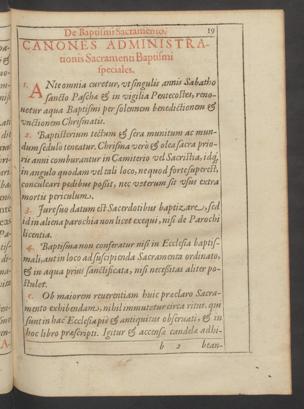 De Baptismi Sacramento. 19
CANONES ADMINISTRA-
tionis Sacramenti Baptismi
speciales.
1. ANte omnia curetur, vt singulis annis Sabatho
sancto Paschæ & in vigilia Pentecostes, reno-
uetur aqua Baptismi per solennem benedictionem &
vnctionem Chrismatis.
2. Baptisterium tectum & sera munitum ac mun-
dum sedulo teneatur. Chrisma verò & olea sacra prio-
ris anni comburantur in Cœmiterio vel Sacristia, idq́;
in angulo quodam vel tali loco, ne quod forte superest,
conculcari pedibus possit, nec veterum sit vsus extra
mortis periculum.
3. Jure suo datum est Sacerdotibus baptizare, sed
id in aliena parochia non licet exequi, nisi de Parochi
licentia.
4. Baptisma non conferatur nisi in Ecclesia baptis-
mali, aut in loco ad suscipienda Sacramenta ordinato,
& in aqua prius sanctificata, nisi necessitas aliter po-
stulet.
5. Ob maiorem reuerentiam huic præclaro Sacra-
mento exhibendam, nihil immutetur circa ritus, qui
sunt in hac Ecclesia piè & antiquitus obseruati, & in
hoc libro præscripti. Igitur & accensa candela adhi-
b 2 bean-